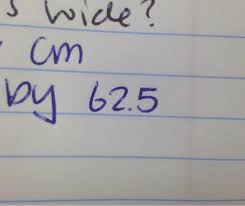 wide?
cm
by 62.5